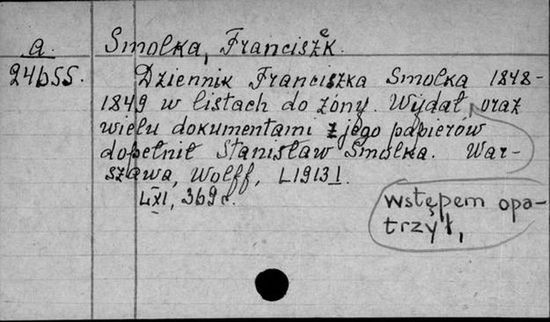 a. Smolka, Franciszek.
24655. Dziennik Franciszka Smolka 1848-
1849 w listach do żony. Wydał, oraz
wielu dokumentami z jego papierów
dopełnił Stanisław Smolka. War-
szawa, Wolff, [1913].
LXI, 369 с.
wstępem opa-
trzył,